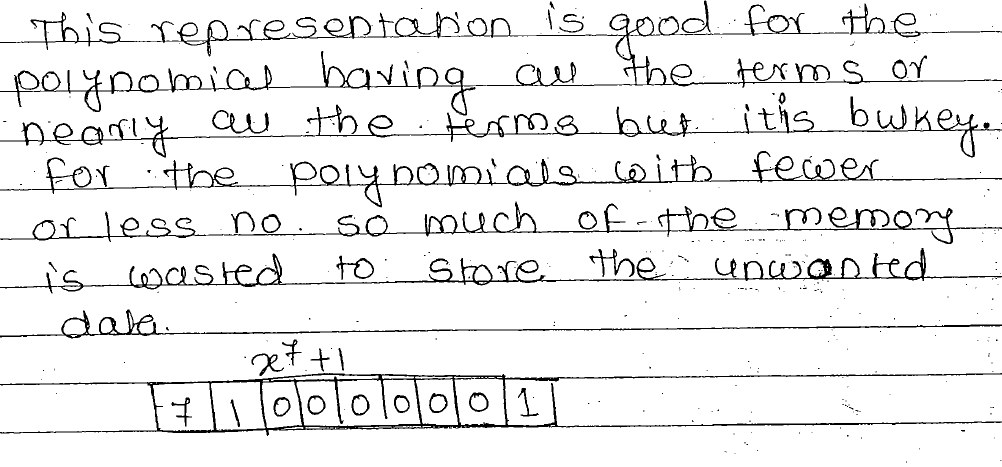 This representation is good for the
polynomial having all the terms or
nearly all the terms but it is bulkey.
for the polynomials with fewer
or less no. so much of the memory
is wasted to store the unwanted
data.
x⁷+1
7 1 0 0 0 0 0 0 1